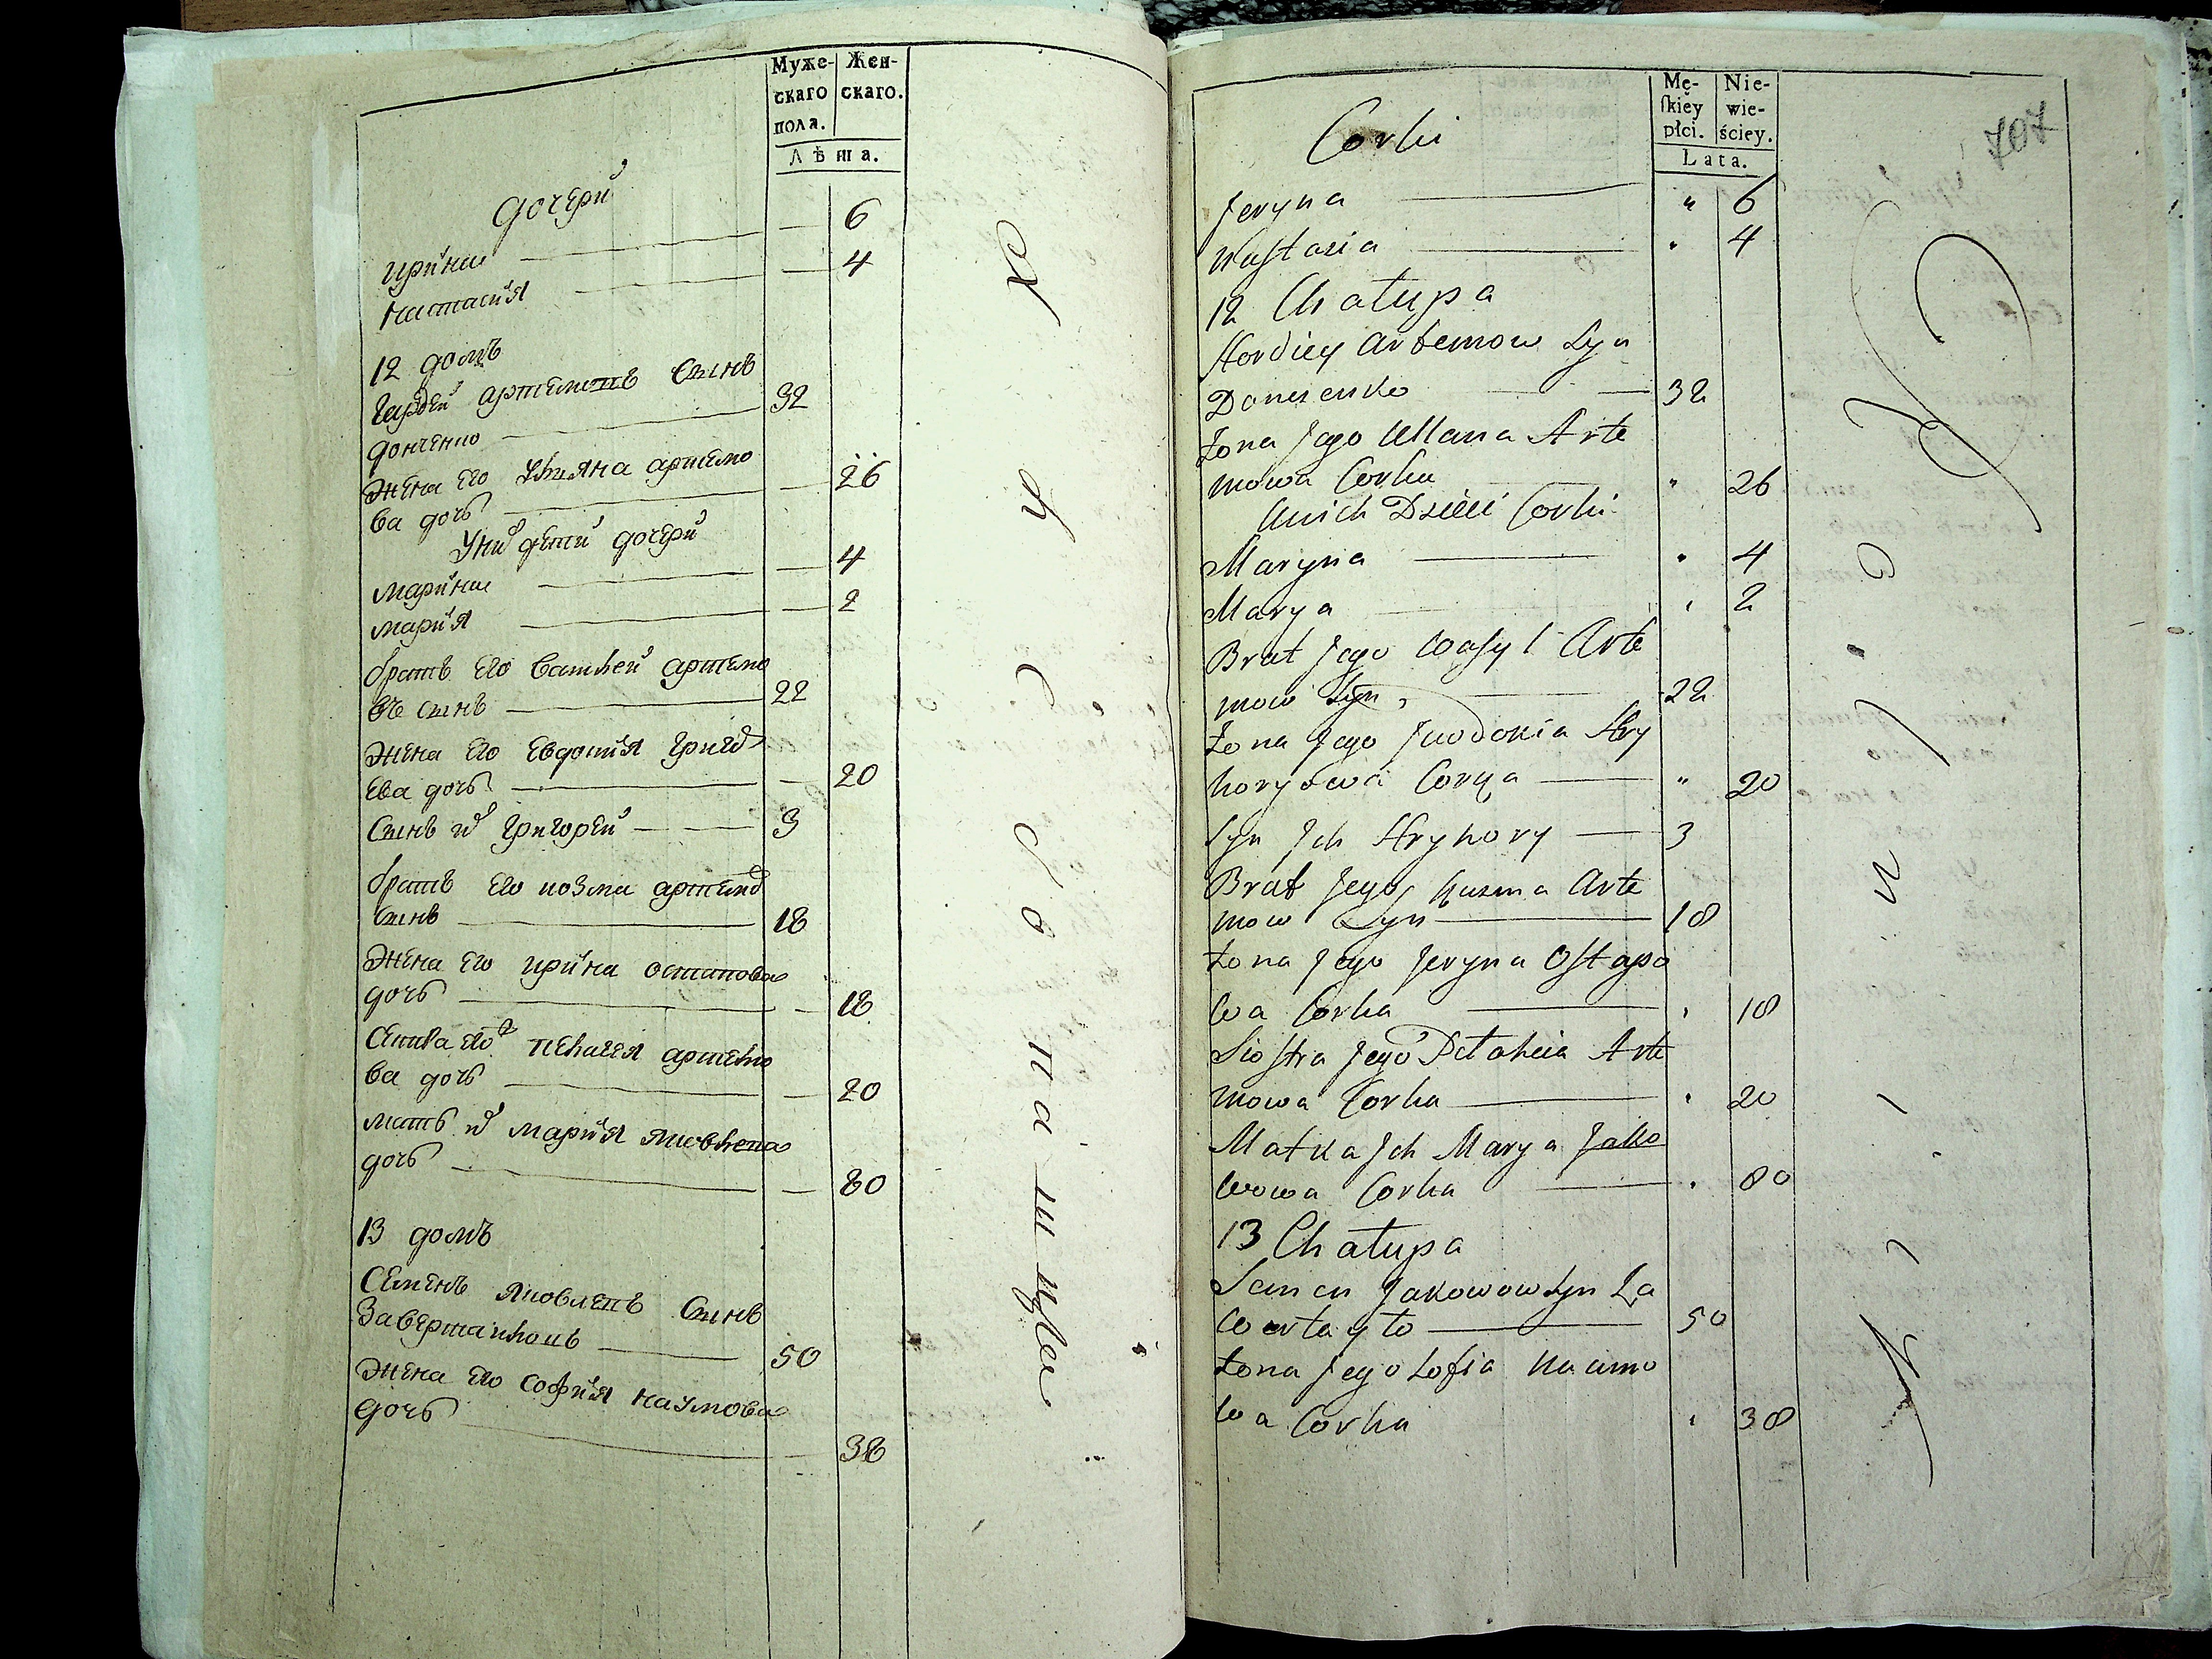 Муже-
скаго
пола.
Жен-
скаго.
Лѣта.
дочери
ирина — 6
настасия — 4
12 домъ
Гардей артемовъ Сынъ
донченко 32
жена его Ульяна артемо
ва дочь — 26
У них дети дочери
марина — 4
мария — 2
братъ его Василей артемо
въ сынъ 22
жена его Евдокия Григор
ева дочь — 20
Сынъ их Григорей 3
братъ его козма артемов
сынъ 18
жена его ирина остапова
дочь — 18
Сестра его пелагея артемо
ва дочь — 20
мать их мария яковлева
дочь — 80
13 домъ
Семенъ яковлевъ Сынъ
50
жена его софия наумова
дочь — 38
Mę-
skiey
płci.
Nie-
wie-
ściey.
Lata.
707
Corki
Jeryna " 6
Nastazia " 4
12 Chałupa
Hordiey Artemow Syn
Donczenko 32
Żona Jego Ullana Arte
mowa Corka " 26
U nich Dzieci Corki
Maryna " 4
Marya " 2
Brat Jego Wasyl Arte
mow Syn 22
Żona Jego Jwdokia Hry
horyowa Corka " 20
Syn Jch Hryhory 3
Brat Jego Kuzma Arte
mow Syn 18
Żona Jego Jeryna Ostapo
wa Corka " 18
Siostra Jego Pelahia Arte
mowa Corka " 20
Matka Jch Marya Jako
wowa Corka " 80
13 Chałupa
Semen Jakowow Syn Za
50
Żona Jego Zofia Naumo
wa Corka " 38